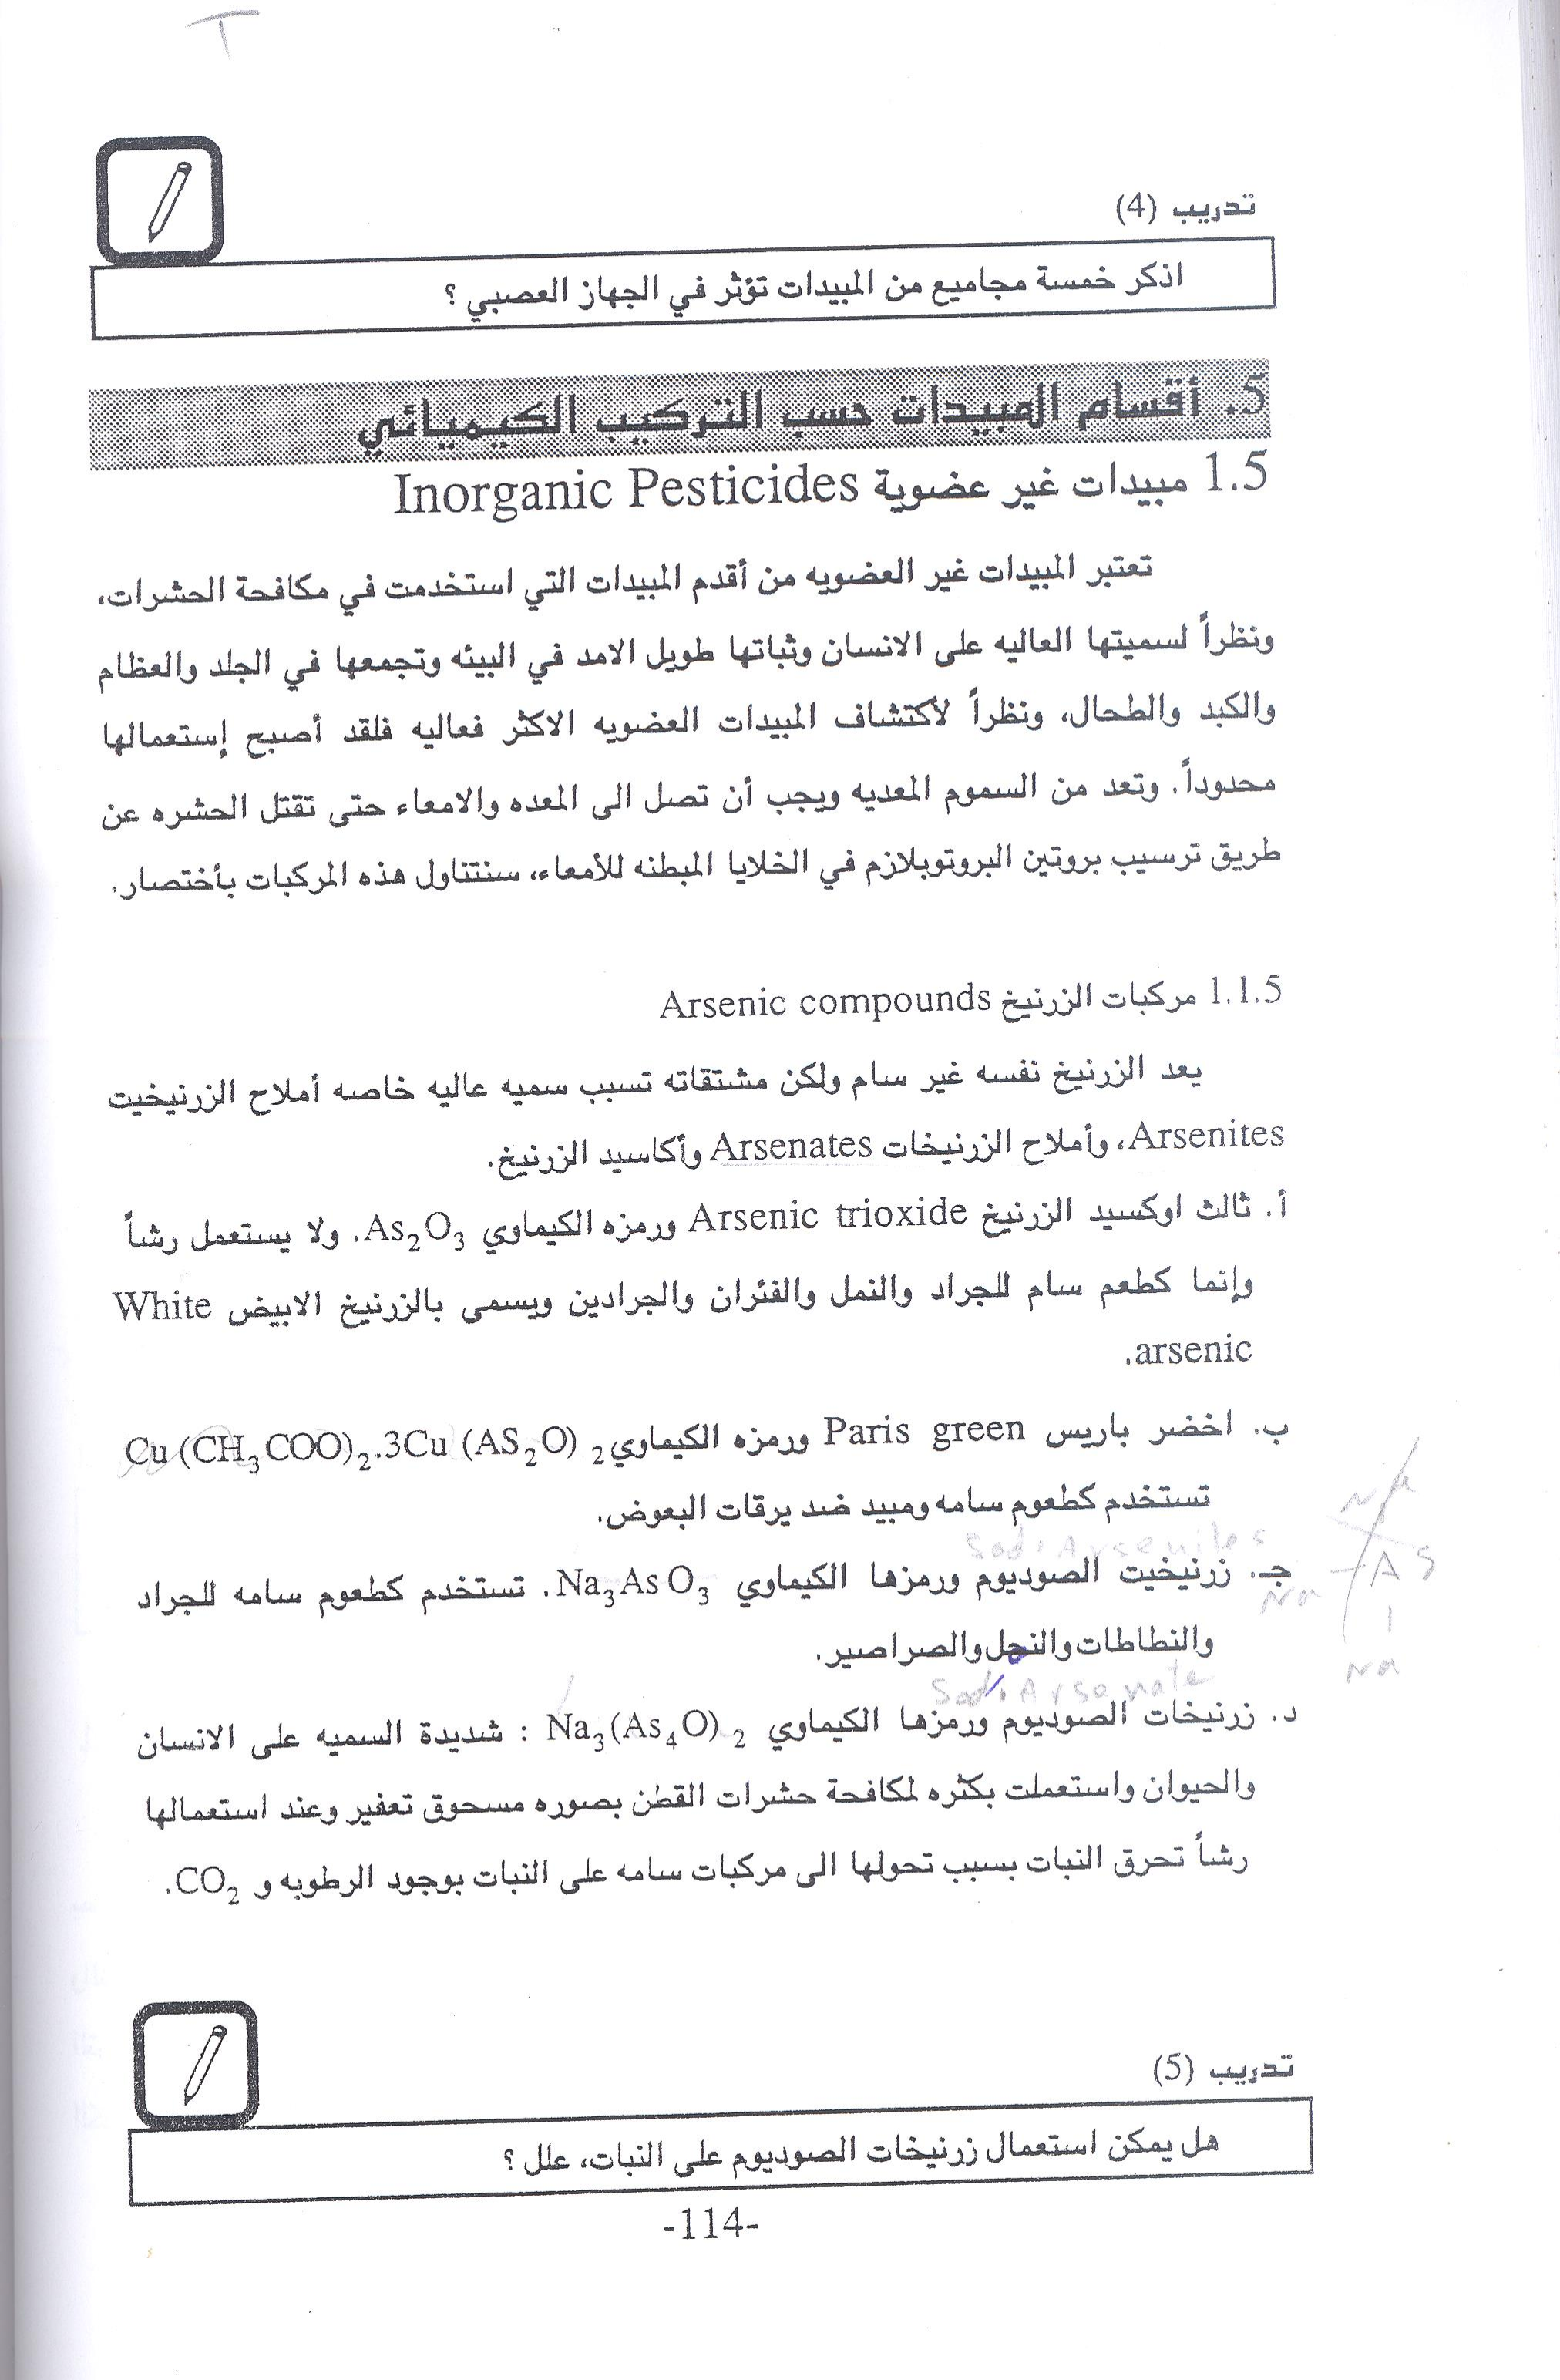 تدريب (4)
اذكر خمسة مجاميع من المبيدات تؤثر في الجهاز العصبي ؟
5. أقسام المبيدات حسب التركيب الكيميائي
1.5 مبيدات غير عضوية Inorganic Pesticides
تعتبر المبيدات غير العضويه من أقدم المبيدات التي استخدمت في مكافحة الحشرات،
ونظراً لسميتها العاليه على الانسان وثباتها طويل الامد في البيئه وتجمعها في الجلد والعظام
والكبد والطحال، ونظراً لأكتشاف المبيدات العضويه الاكثر فعاليه فلقد أصبح إستعمالها
محدوداً. وتعد من السموم المعديه ويجب أن تصل الى المعده والامعاء حتى تقتل الحشره عن
طريق ترسيب بروتين البروتوبلازم في الخلايا المبطنه للأمعاء، سنتناول هذه المركبات بأختصار.
1.1.5 مركبات الزرنيخ Arsenic compounds
يعد الزرنيخ نفسه غير سام ولكن مشتقاته تسبب سميه عاليه خاصه أملاح الزرنيخيت
Arsenites، وأملاح الزرنيخات Arsenates وأكاسيد الزرنيخ.
أ. ثالث اوكسيد الزرنيخ Arsenic trioxide ورمزه الكيماوي As₂O₃. ولا يستعمل رشاً
وإنما كطعم سام للجراد والنمل والفئران والجرادين ويسمى بالزرنيخ الابيض White
arsenic.
ب. اخضر باريس Paris green ورمزه الكيماوي Cu (CH₃COO)₂.3Cu (AS₂O) ₂
تستخدم كطعوم سامه ومبيد ضد يرقات البعوض.
Sod. Arsenites
Na
جـ. زرنيخيت الصوديوم ورمزها الكيماوي Na₃AsO₃. تستخدم كطعوم سامه للجراد
Na - AS
والنطاطات والنحل والصراصير.
Na
Sod. Arsenate
د. زرنيخات الصوديوم ورمزها الكيماوي Na₃(As₄O) ₂ : شديدة السميه على الانسان
والحيوان واستعملت بكثره لمكافحة حشرات القطن بصوره مسحوق تعفير وعند استعمالها
رشاً تحرق النبات بسبب تحولها الى مركبات سامه على النبات بوجود الرطوبه و CO₂.
تدريب (5)
هل يمكن استعمال زرنيخات الصوديوم على النبات، علل ؟
-114-